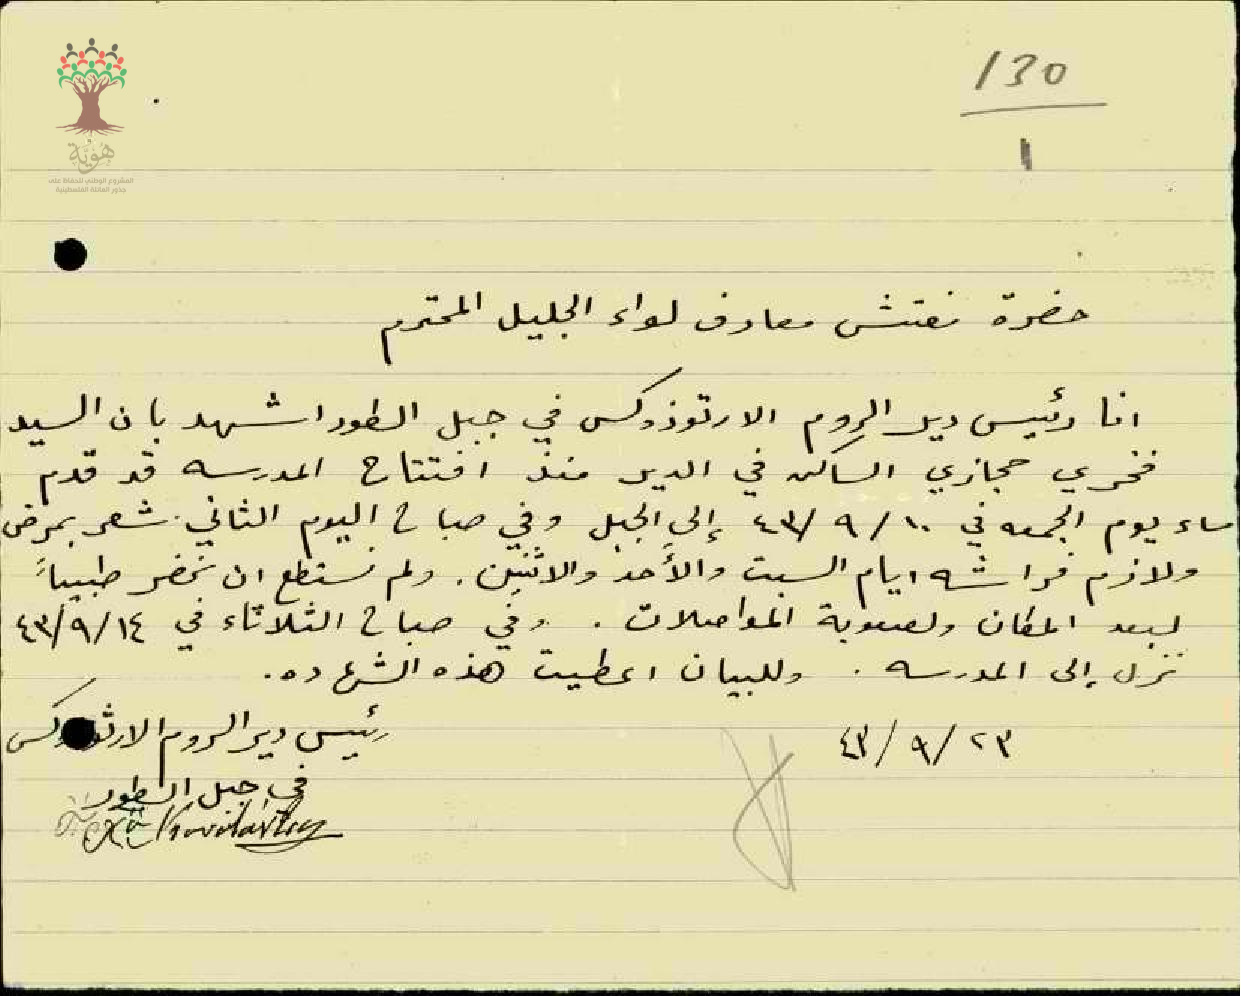 130
1
هوية
المشروع الوطني للحفاظ على
جذور العائلة الفلسطينية
حضرة مفتش معارف لواء الجليل المحترم
انا رئيس دير الروم الارتوذوكس في جبل الطور اشهد بان السيد
فخري حجازي الساكن في الدير منذ افتتاح المدرسه قد قدم
مساء يوم الجمعه في ١٠ / ٩ / ٤٣ إلى الجبل وفي صباح اليوم الثاني شعر بمرض
ولازم فراشه ايام السبت والأحد والاثنين. ولم نستطع ان نحضر طبيباً
لبعد المكان ولصعوبة المواصلات . وفي صباح الثلاثاء في ١٤ / ٩ / ٤٣
نزل إلى المدرسه . وللبيان اعطيت هذه الشهاده .
٢٣ / ٩ / ٤٣
رئيس دير الروم الارثوذوكس
في جبل الطور